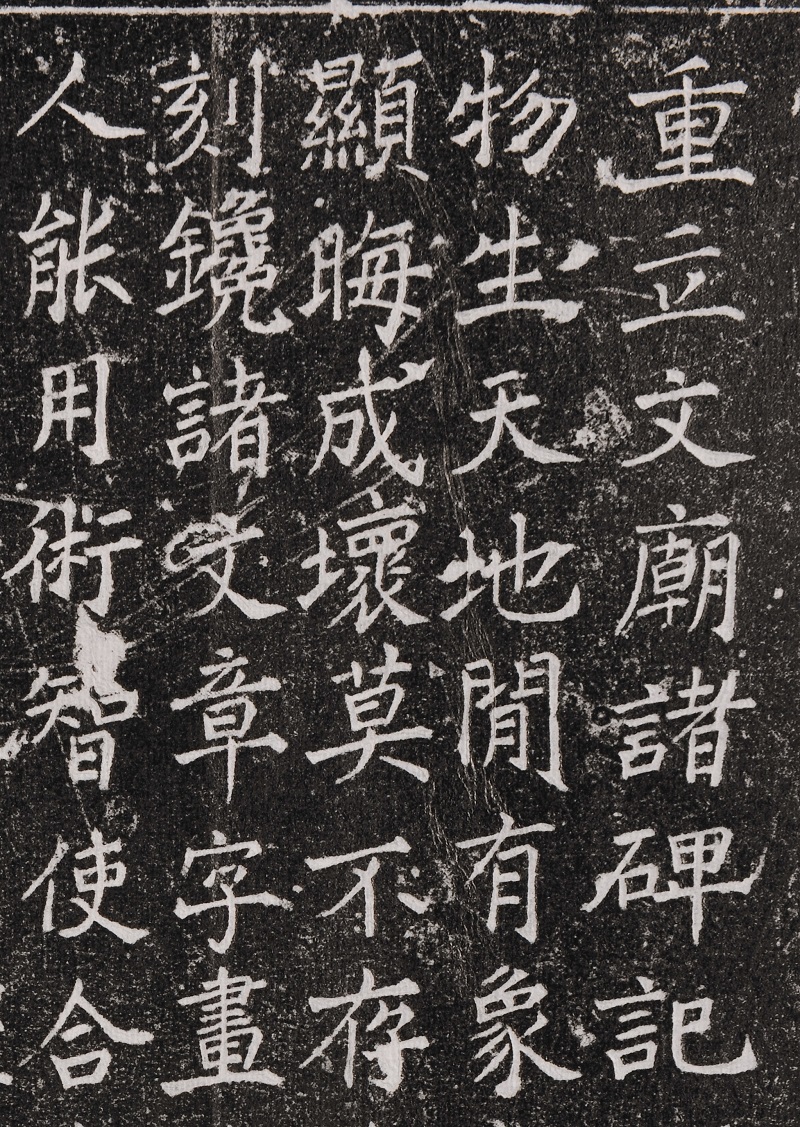 重立文廟諸碑記
物生天地閒有象
顯晦成壞莫不存
刻鑱諸文章字畫
人能用術智使合